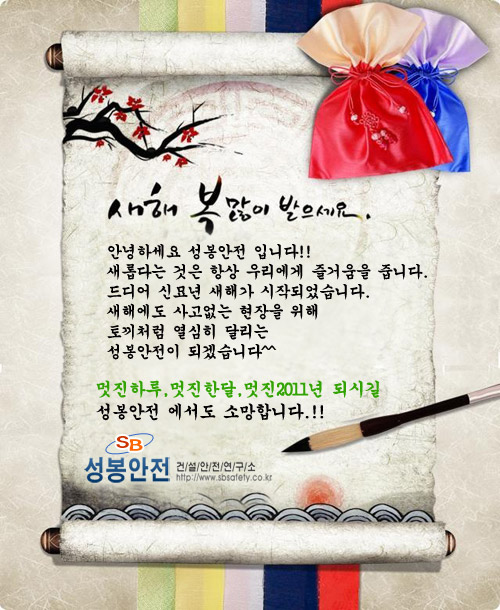 새해 복 많이 받으세요.
안녕하세요 성봉안전 입니다!!
새롭다는 것은 항상 우리에게 즐거움을 줍니다.
드디어 신묘년 새해가 시작되었습니다.
새해에도 사고없는 현장을 위해
토끼처럼 열심히 달리는
성봉안전이 되겠습니다^^
멋진하루,멋진한달,멋진2011년 되시길
성봉안전 에서도 소망합니다.!!
SB
성봉안전 건/설/안/전/연/구/소
http://www.sbsafety.co.kr